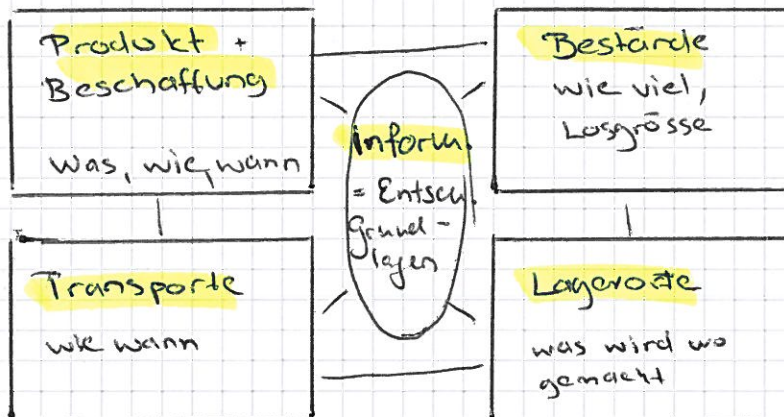 Produkt +
Beschaffung
Was, wie, wann
Bestände
wie viel,
Losgrösse
Inform.
= Entsch.
Grund-
lagen
Transporte
wie wann
Lagerorte
was wird wo
gemacht